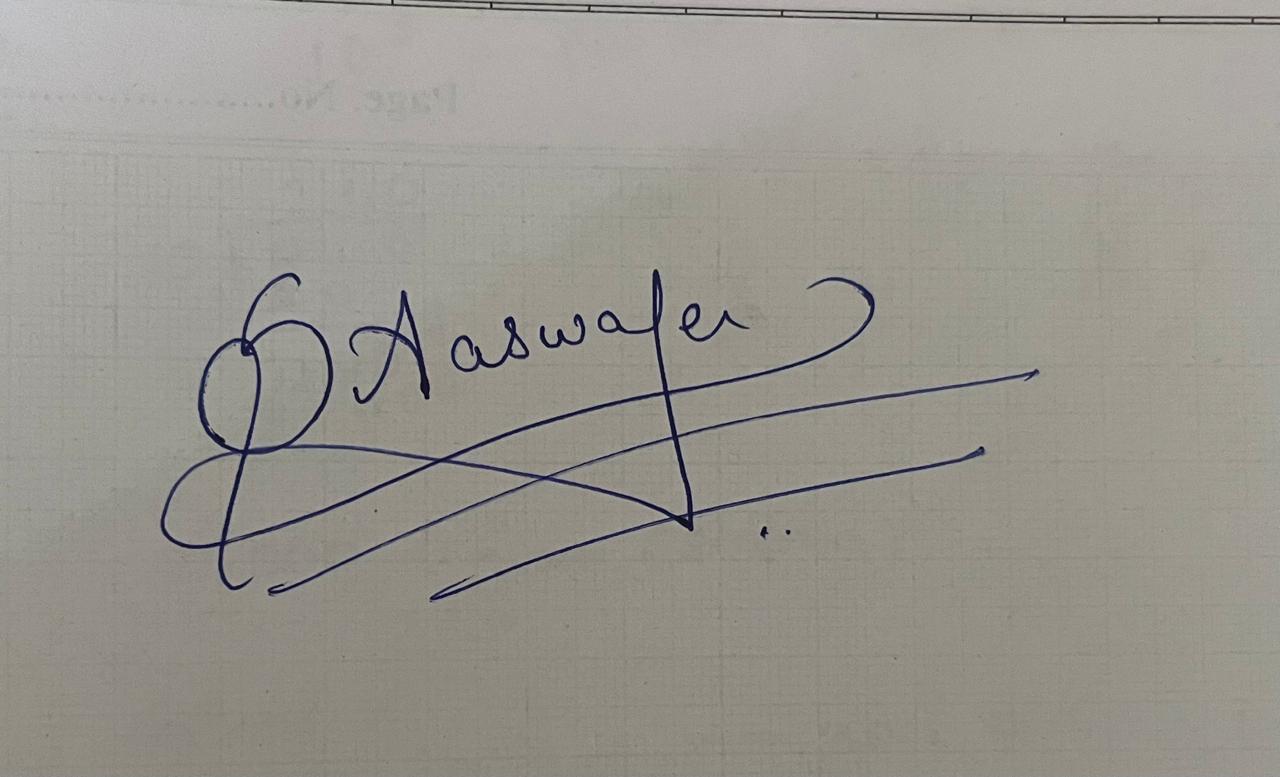 Page. No..........................
Aaswafer